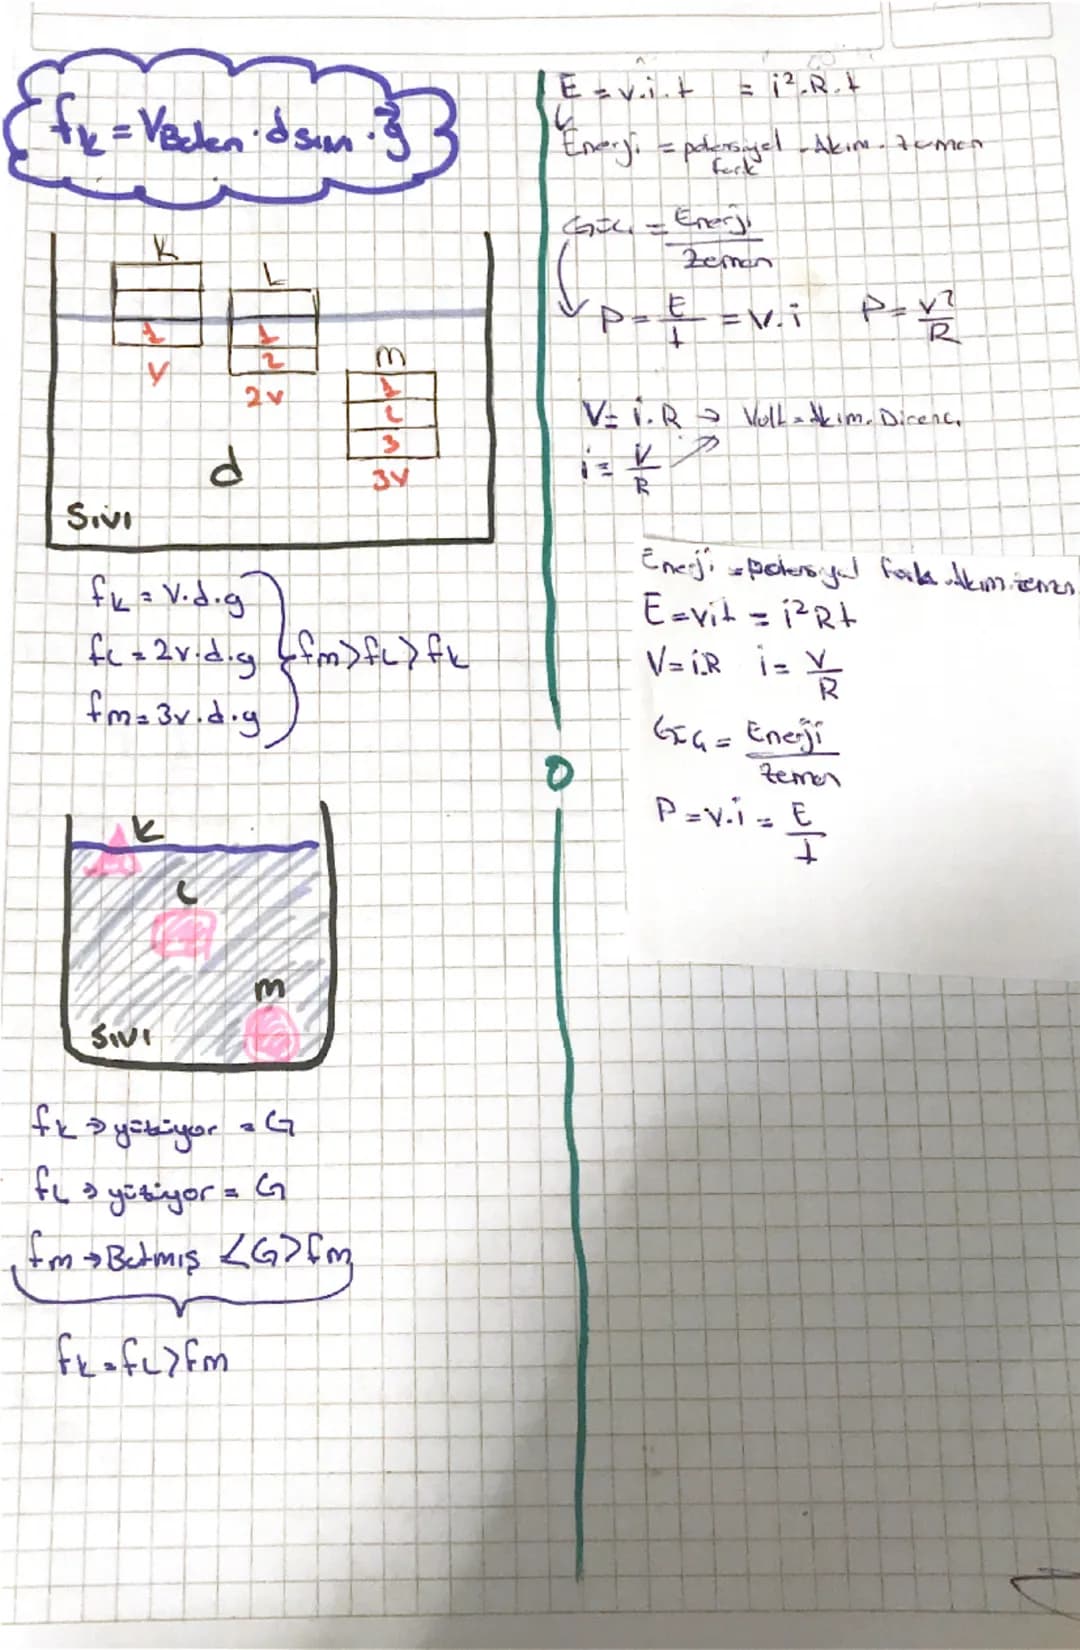 fk = VBatan . dsıvı . g
K
L
m
1
1
2
1
2
3
V
2v
3v
d
Sıvı
fk = V.d.g
fL = 2v.d.g
fm = 3v.d.g
fm > fL > fk
K
L
m
Sıvı
fk → yüzüyor = G
fL → yüzüyor = G
fm → Batmış < G > fm
fk = fL > fm
E = v.i.t = i².R.t
Enerji = potansiyel fark . Akım . zaman
Güç = Enerji / Zaman
P = E / t = V.i P = V² / R
V = i.R → Volt = Akım . Direnç
i = V / R
Enerji = potansiyel fark . Akım . zaman
E = vit = i²Rt
V = i.R i = V / R
Güç = Enerji / zaman
P = v.i = E / t